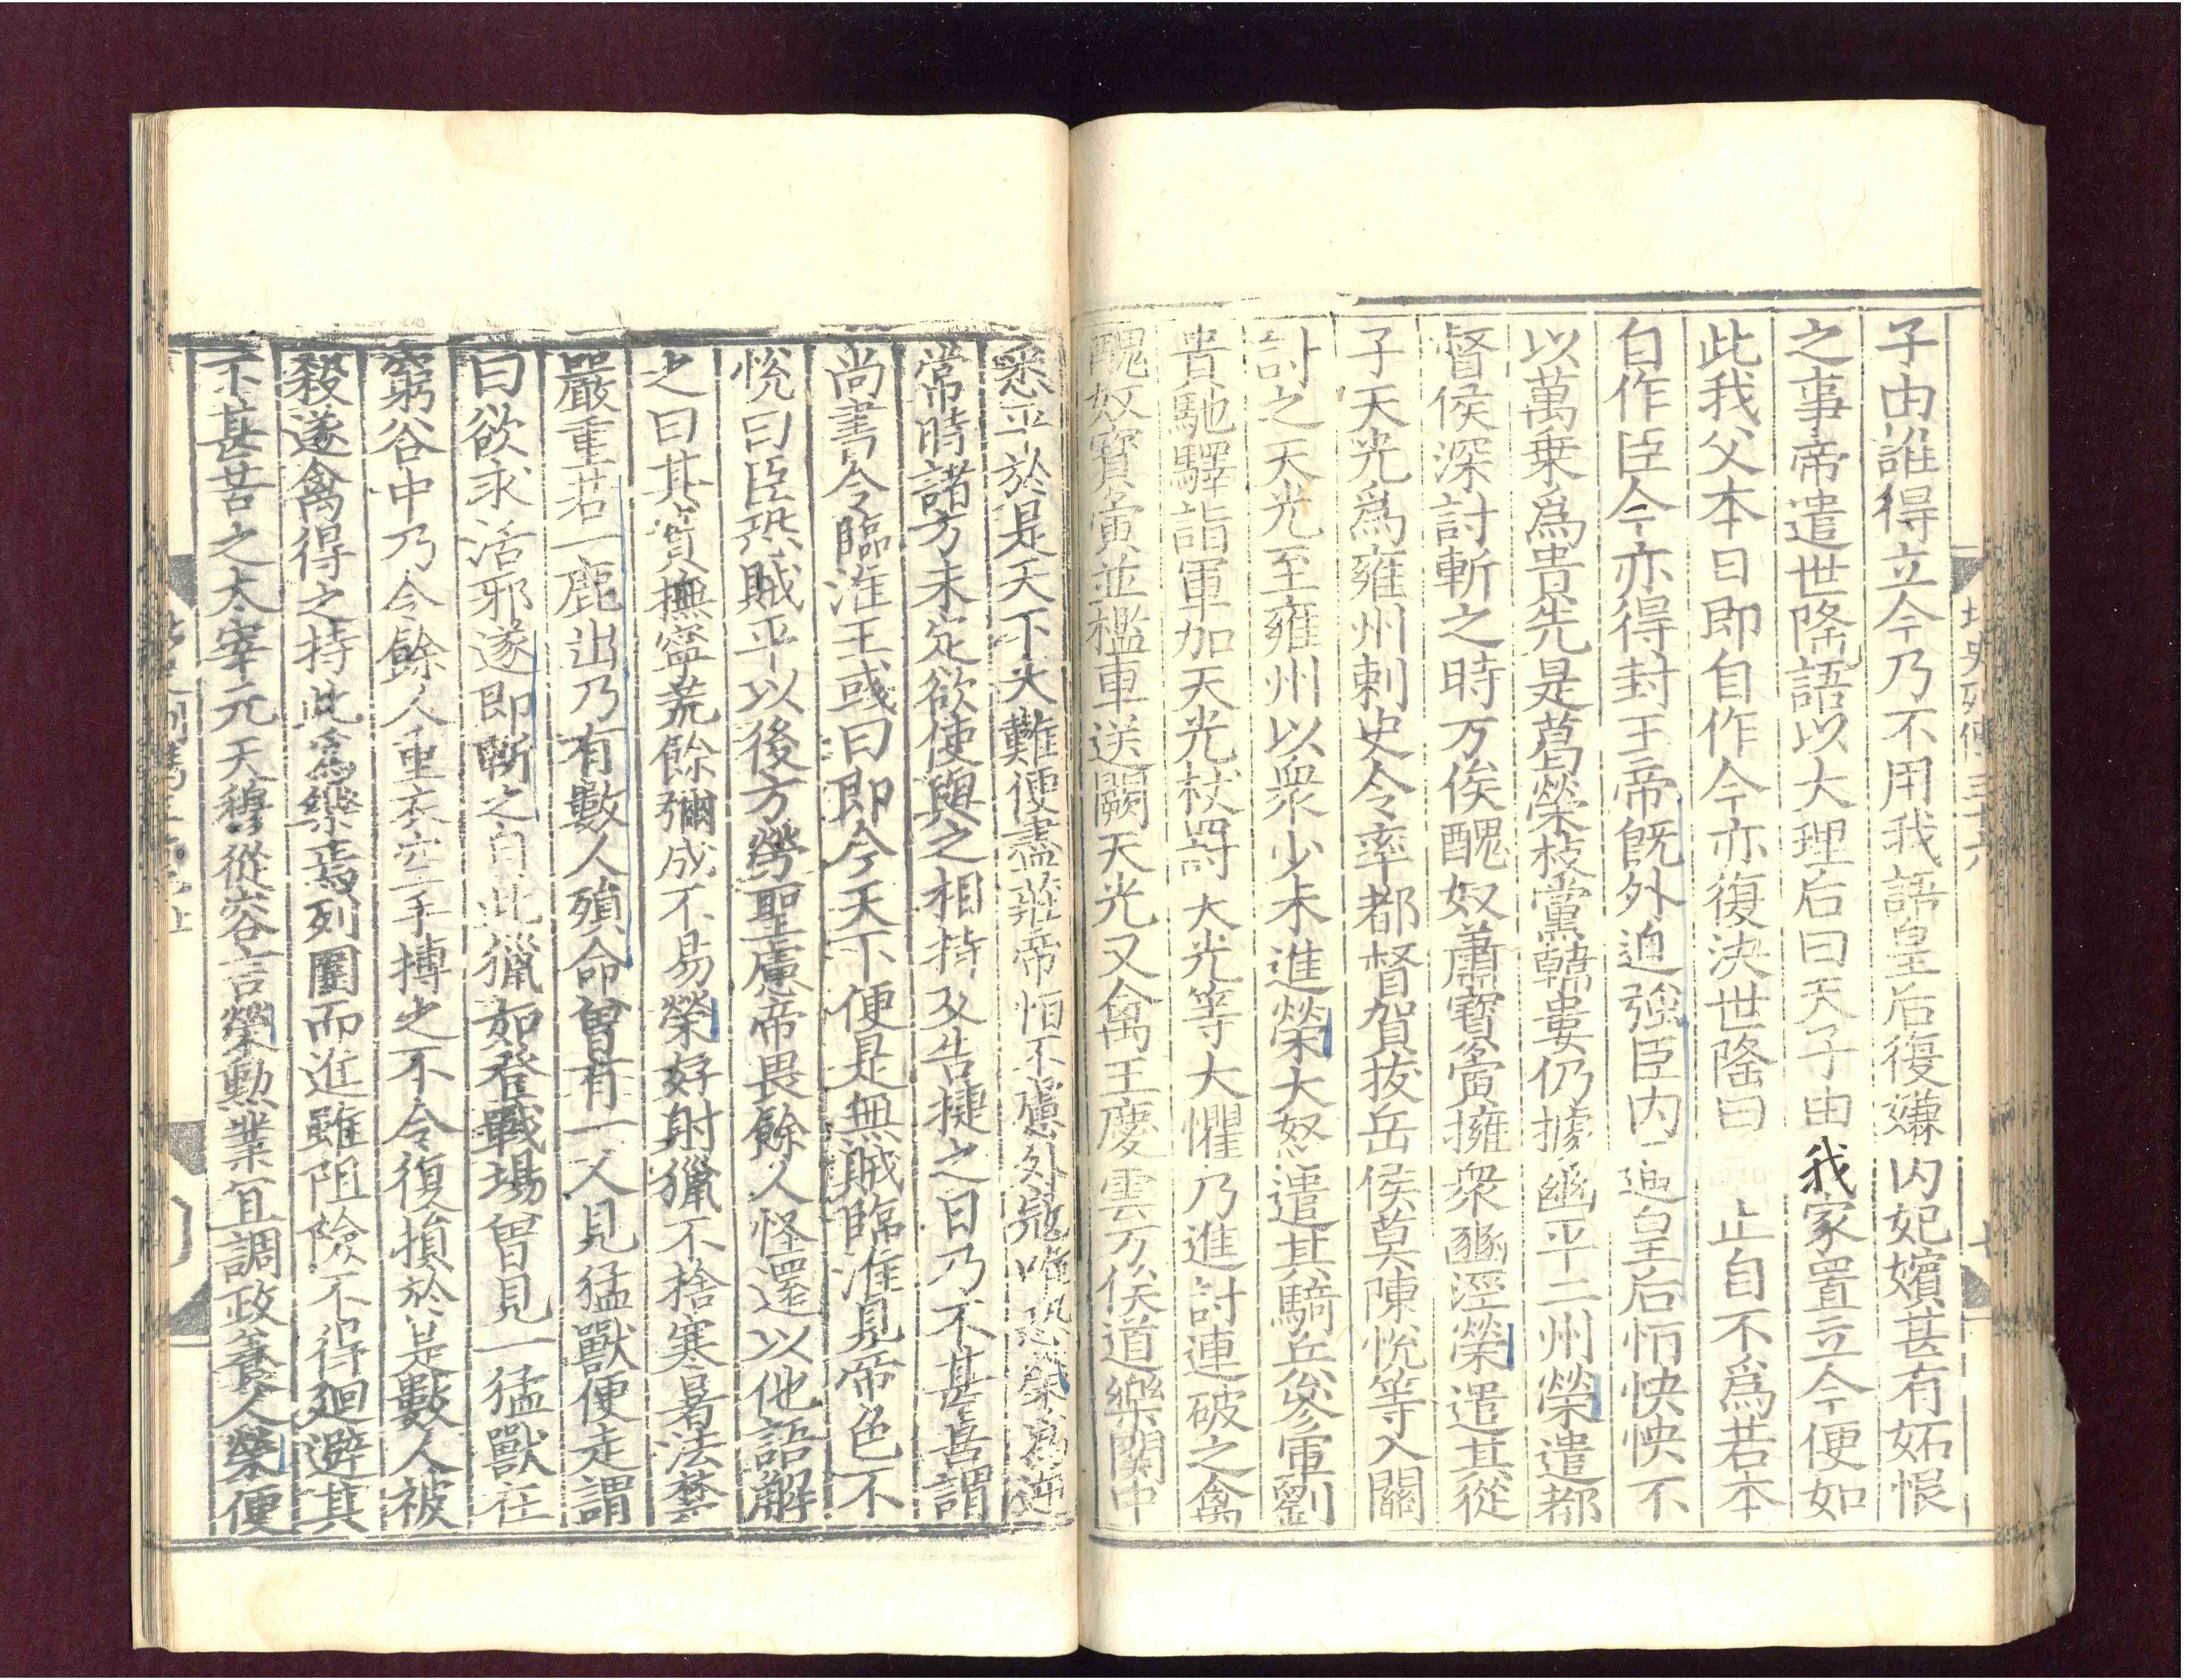 子由誰得立今乃不用我語皇后復嫌內妃嬪甚有妬恨
之事帝遣世隆語以大理后曰天子由我家置立今便如
此我父本日即自作今亦復決世隆曰止自不爲若本
自作臣今亦得封王帝既外迫強臣内迫皇后怏怏不
以萬乗爲貴先是葛榮枝黨韓婁仍據幽平二州榮遣都
督侯深討斬之時万俟醜奴蕭寶夤擁衆豳涇榮遣其從
子天光爲雍州刺史令率都督賀拔岳侯莫陳悅等入關
討之天光至雍州以衆少未進榮大怒遣其騎兵參軍劉
貴馳驛詣軍加天光杖罰天光等大懼乃進討連破之禽
醜奴寶夤並檻車送闕天光又禽王慶雲万俟道樂關中
悉平於是天下大難便盡莊帝怕不慮外寇唯恐榮爲逆
常時諸方未定欲使與之相持及告捷之日乃不甚喜謂
尚書令臨淮王彧曰即今天下便是無賊臨淮見帝色不
悅曰臣恐賊平以後方勞聖慮帝畏餘人怪還以他語解
之曰其實撫寧荒餘彌成不易榮好射獵不捨寒暑法禁
嚴重若一鹿出乃有數人殞命曾有一人見猛獸便走謂
曰欲求活邪遂即斬之自此獵如登戰場曾見一猛獸在
窮谷中乃令餘人重衣空手搏之不令復損於是數人被
殺遂禽得之持此爲樂焉列圍而進雖阻險不得廻避其
不甚苦之太宰元天穆從容言榮勳業宜調政養人榮便
北史列傳三十六
七